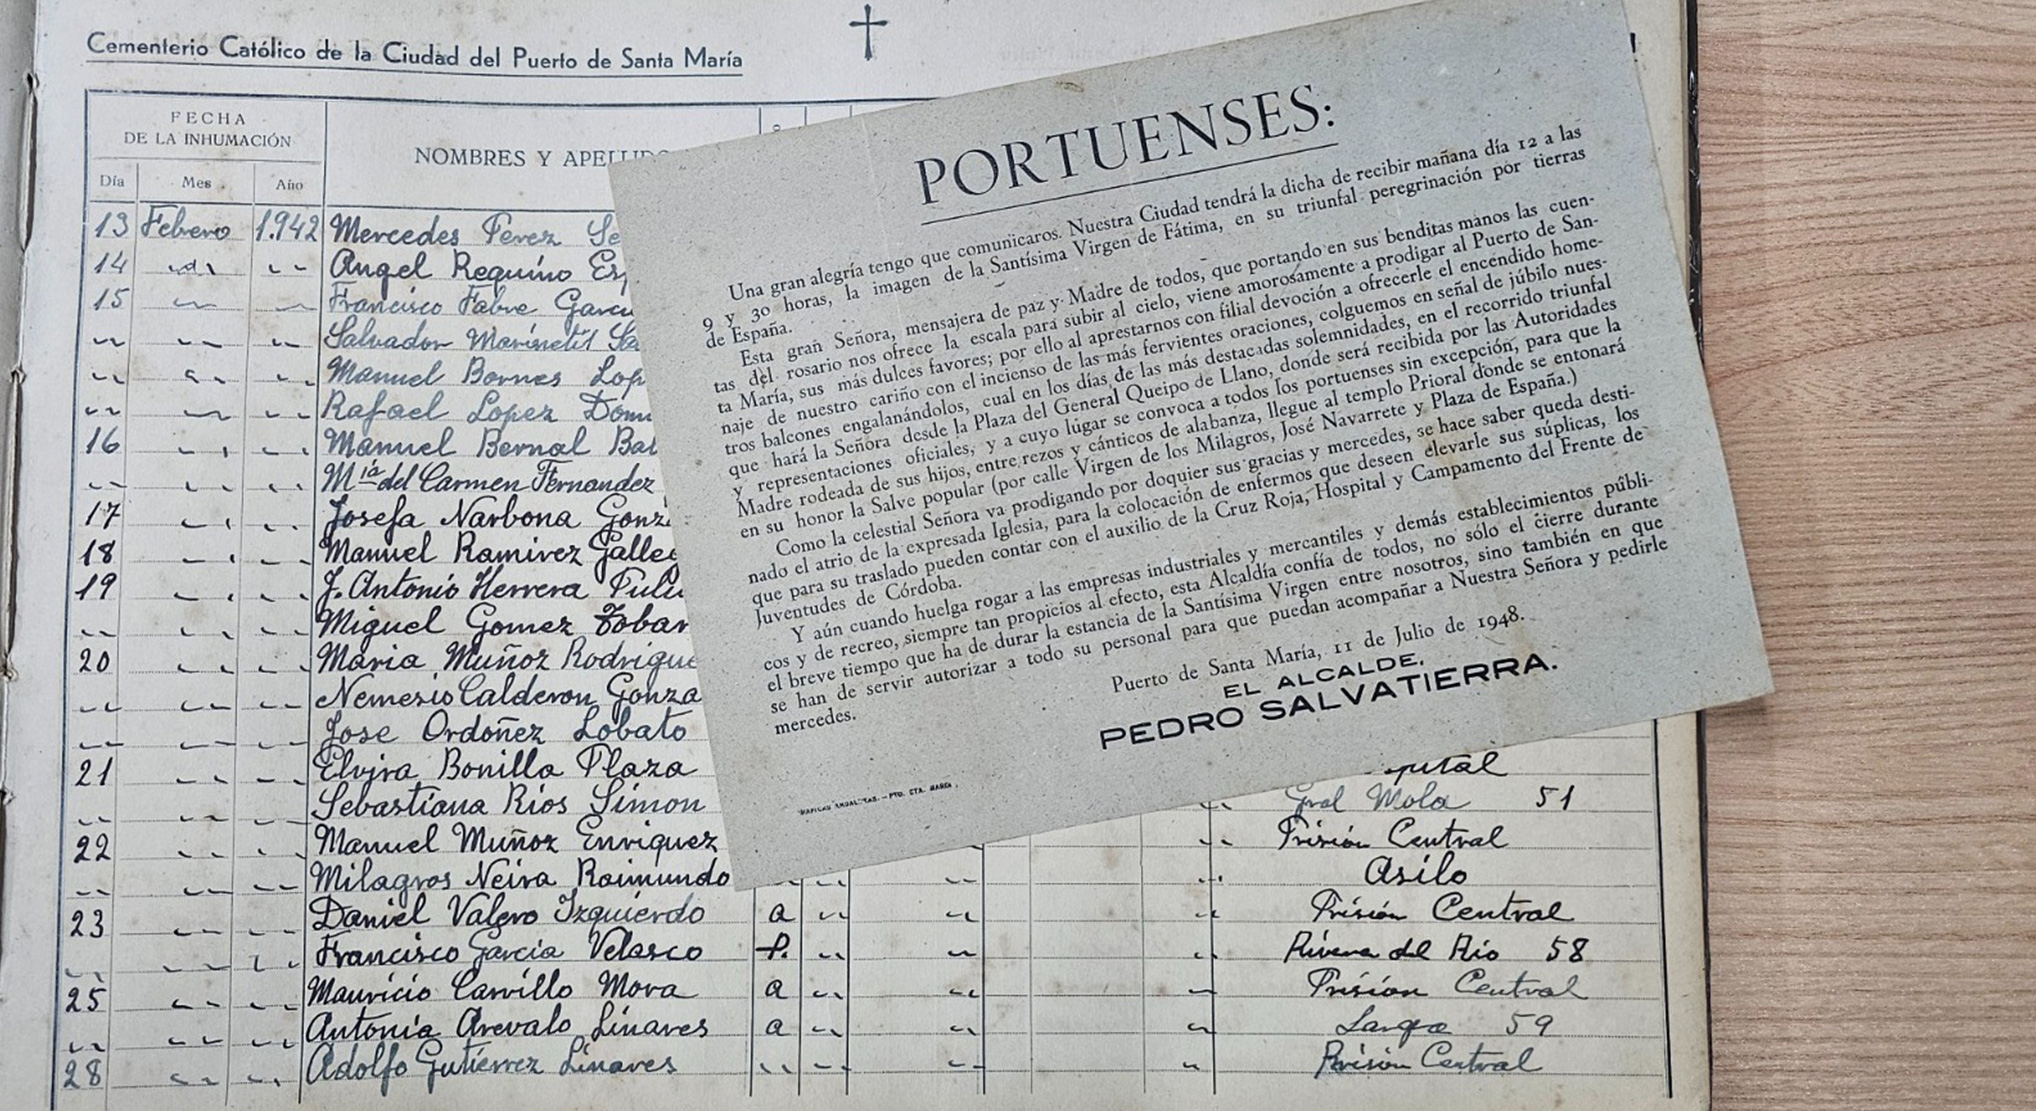 Cementerio Católico de la Ciudad del Puerto de Santa María
FECHA
DE LA INHUMACIÓN
NOMBRES Y APELLIDO
Día Mes Año
13 Febrero 1.942 Mercedes Perez Se
14 Angel Requino Es
15 Francisco Fabre Garcí
Salvador
Manuel Bornes Lop
Rafael Lopez Dom
16 Manuel Bernal Ba
Mía del Carmen Fernandez
17 Josefa Narbona Gonz
18 Manuel Ramirez Galle
19 J. Antonio Herrera
Miguel Gomez Tobar
20 Maria Muñoz Rodrigue
Nemesio Calderon Gonza
Jose Ordoñez Lobato
21 Elvira Bonilla Plaza
Sebastiana Rios Simon Gral Mola 51
22 Manuel Muñoz Enriquez Prisión Central
Milagros Neira Raimundo Asilo
23 Daniel Valero Izquierdo a Prisión Central
Francisco Garcia Velasco P. Rivera del Rio 58
25 Mauricio Carrillo Mora a Prisión Central
Antonia Arevalo Linares a Larga 59
28 Adolfo Gutierrez Linares Prisión Central
PORTUENSES:
Una gran alegría tengo que comunicaros. Nuestra Ciudad tendrá la dicha de recibir mañana día 12 a las
9 y 30 horas, la imagen de la Santísima Virgen de Fátima, en su triunfal peregrinación por tierras
de España.
Esta gran Señora, mensajera de paz y Madre de todos, que portando en sus benditas manos las cuen-
tas del rosario nos ofrece la escala para subir al cielo, viene amorosamente a prodigar al Puerto de San-
ta María, sus más dulces favores; por ello al aprestarnos con filial devoción a ofrecerle el encendido home-
naje de nuestro cariño con el incienso de las más fervientes oraciones, colguemos en señal de júbilo nues-
tros balcones engalanándolos, cual en los días de las más destacadas solemnidades, en el recorrido triunfal
que hará la Señora desde la Plaza del General Queipo de Llano, donde será recibida por las Autoridades
y representaciones oficiales, y a cuyo lugar se convoca a todos los portuenses sin excepción, para que la
Madre rodeada de sus hijos, entre rezos y cánticos de alabanza, llegue al templo Prioral donde se entonará
en su honor la Salve popular (por calle Virgen de los Milagros, José Navarrete y Plaza de España.)
Como la celestial Señora va prodigando por doquier sus gracias y mercedes, se hace saber queda desti-
nado el atrio de la expresada Iglesia, para la colocación de enfermos que deseen elevarle sus súplicas, los
que para su traslado pueden contar con el auxilio de la Cruz Roja, Hospital y Campamento del Frente de
Juventudes de Córdoba.
Y aún cuando huelga rogar a las empresas industriales y mercantiles y demás establecimientos públi-
cos y de recreo, siempre tan propicios al efecto, esta Alcaldía confía de todos, no sólo el cierre durante
el breve tiempo que ha de durar la estancia de la Santísima Virgen entre nosotros, sino también en que
se han de servir autorizar a todo su personal para que puedan acompañar a Nuestra Señora y pedirle
mercedes.
Puerto de Santa María, 11 de Julio de 1948.
EL ALCALDE,
PEDRO SALVATIERRA.